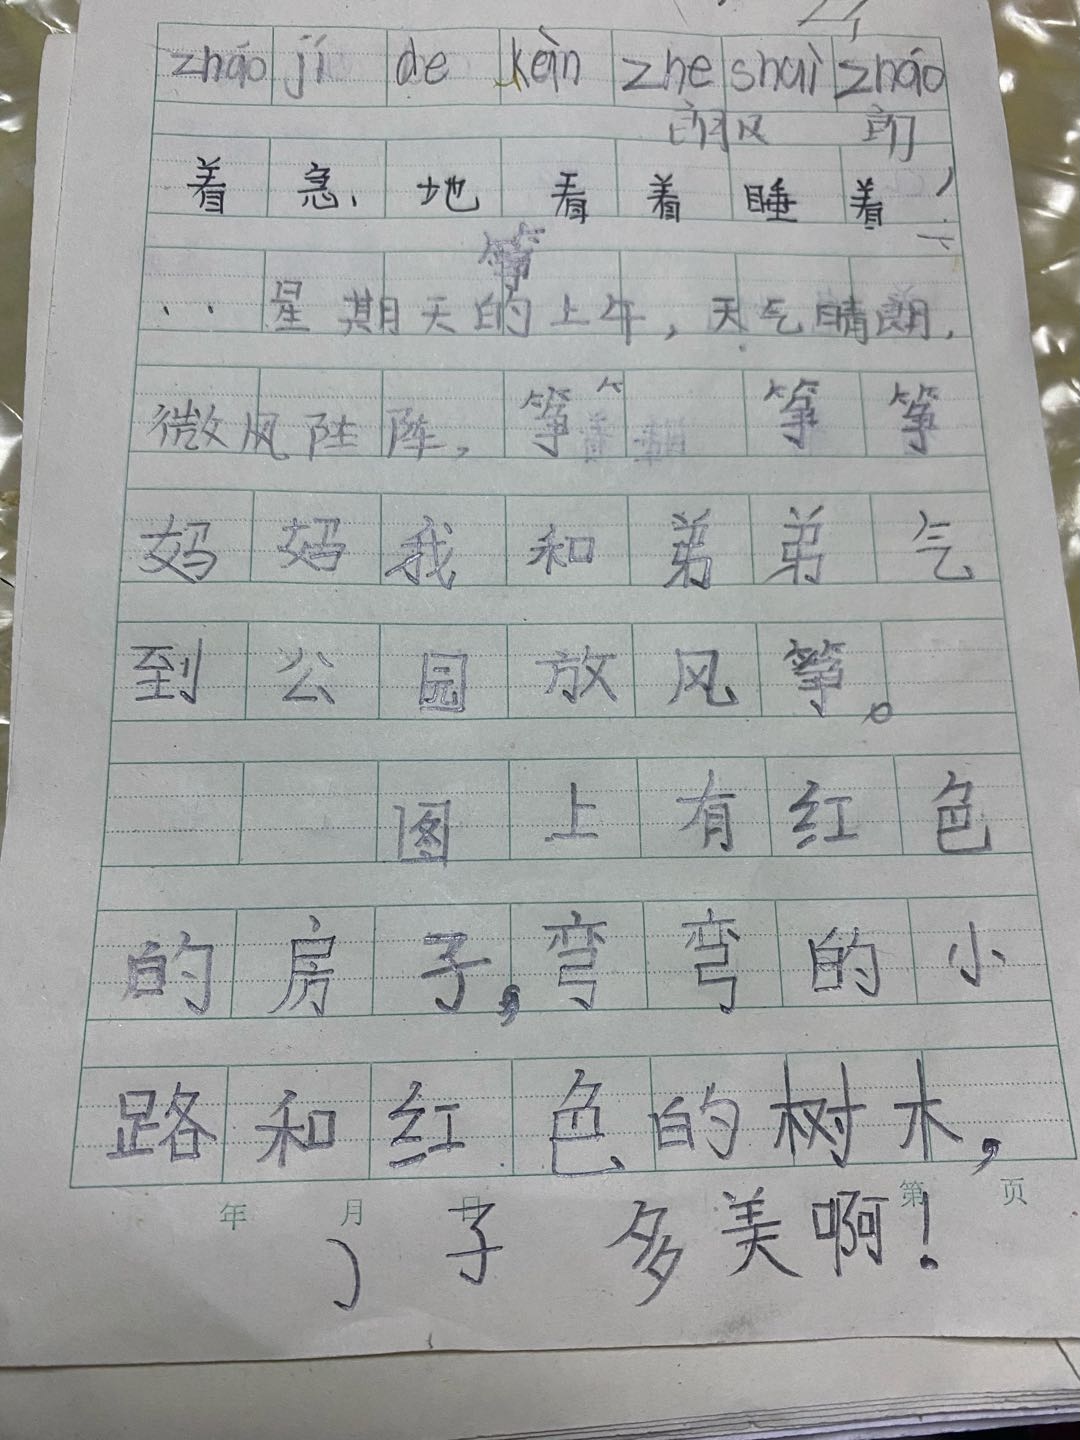 zháo jí de kàn zhe shuì zháo
朗风 朗
着急地看着睡着
筝
星期天的上午，天气晴朗，
微风阵阵，筝 筝 筝
妈妈我和弟弟气
到公园放风筝。
图上有红色
的房子，弯弯的小
路和红色的树木，
年 月 日 第 页
子 多美啊！